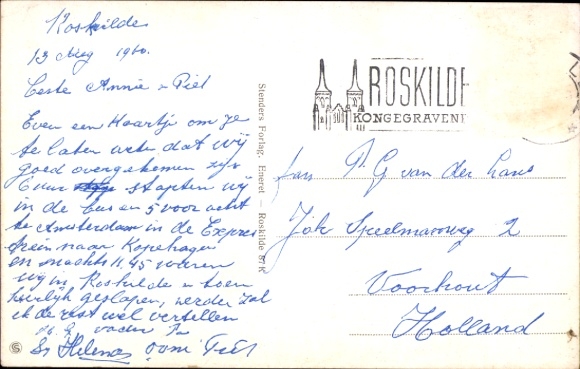 Roskilde
13 Aug 1960.
Beste Annie & Piet
Even een kaartje om je
te laten weten dat wij
goed overgekomen zijn
stapten wij
in de bus en 5 voor acht
te Amsterdam in de Expres
trein naar Kopenhagen
en snachts 11.45 waren
wij in Roskilde en toen
heerlijk geslapen, verder zal
ik de rest wel vertellen
vader
Helena oom Piet
Stenders Forlag. Eneret — Roskilde 81 K
ROSKILDE
KONGEGRAVENE
Fam. G van der Lans
Speelmanweg 2
Voorhout
Holland
S